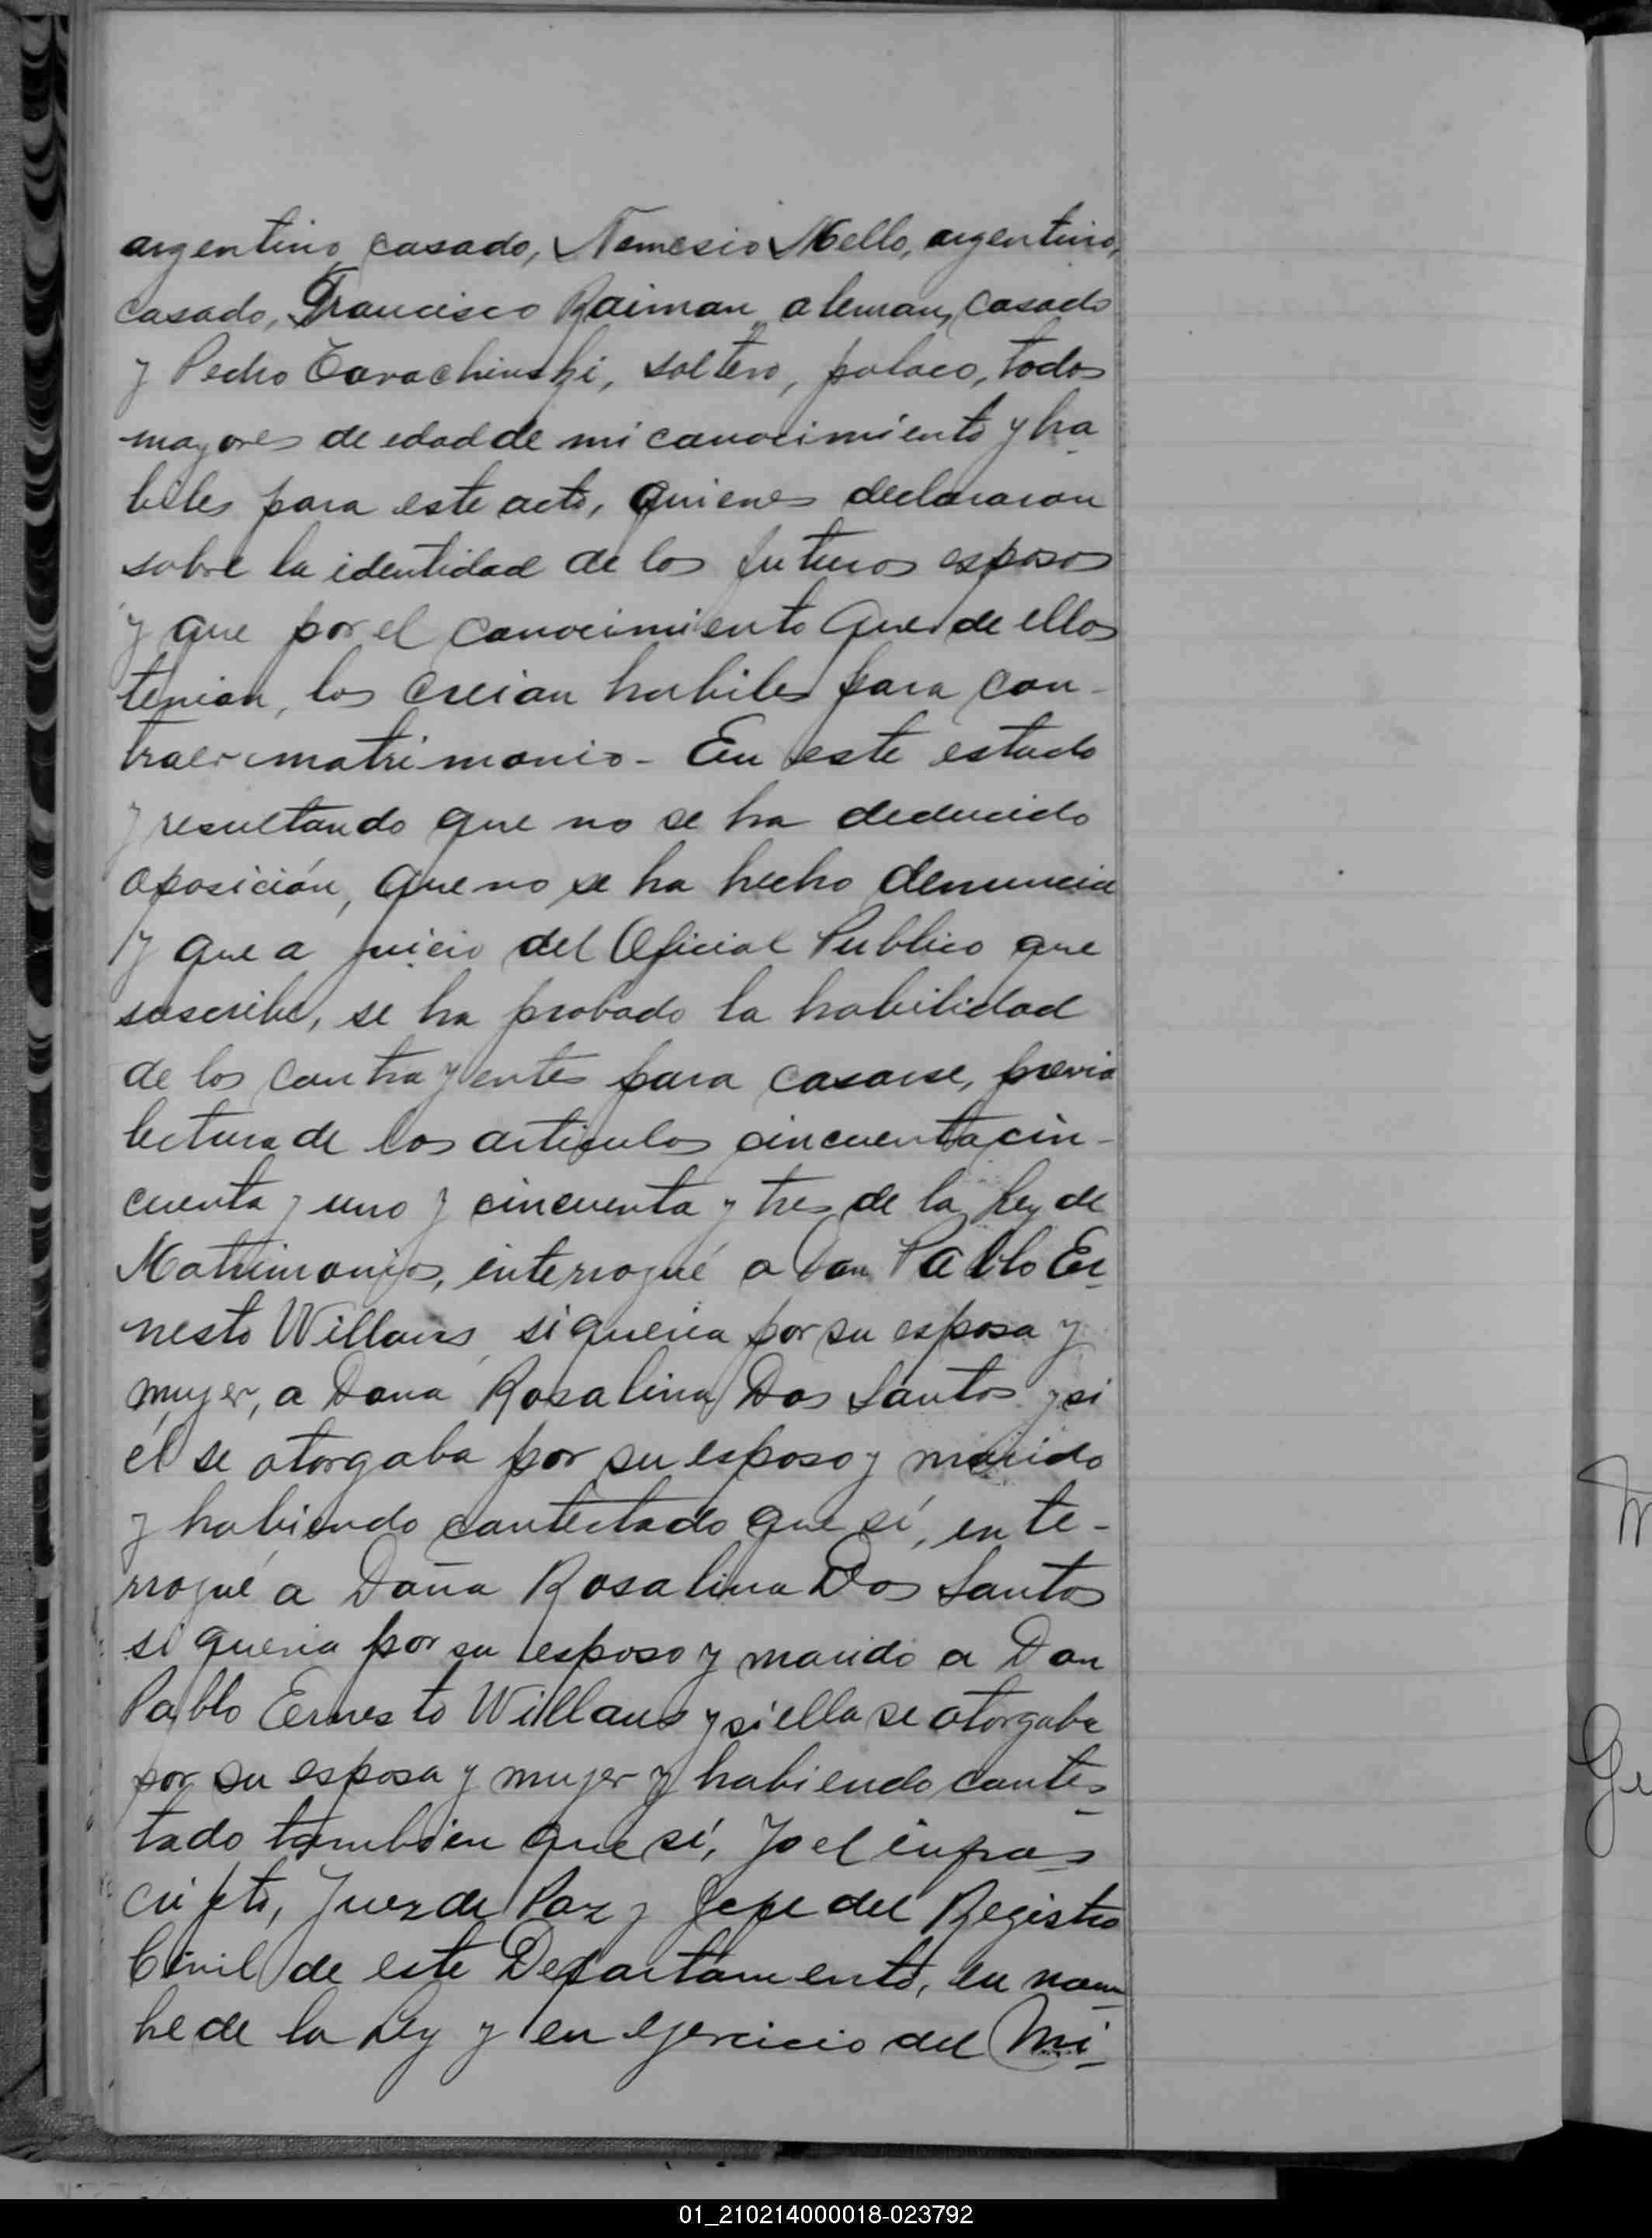 argentino, casado, Nemesio Mello, argentino,
casado, Francisco Raiman, aleman, casado
y Pedro Tarachinski, soltero, polaco, todos
mayores de edad de mi conocimiento y ha
biles para este acto, quienes declararon
sobre la identidad de los futuros esposos
y que por el conocimiento que de ellos
tenian, los creian habiles para con-
traer matrimonio - En este estado
y resultando que no se ha deducido
oposición, que no se ha hecho denuncia
y que a juicio del Oficial Publico que
suscribe, se ha probado la habilidad
de los contrayentes para casarse, previa
lectura de los articulos cincuenta, cin-
cuenta y uno y cincuenta y tres de la Ley de
Matrimonios, interrogué a Don Pablo Er-
nesto Willans, si queria por su esposa y
mujer, a Dona Rosalina Dos Santos y si
él se otorgaba por su esposo y marido
y habiendo contestado que sí, inte-
rrogué a Doña Rosalina Dos Santos
si queria por su esposo y marido a Don
Pablo Ernesto Willans y si ella se otorgaba
por su esposa y mujer y habiendo contes-
tado tambien que sí, Yo el infras-
cripto, Juez de Paz y Jefe del Registro
Civil de este Departamento, en nom-
bre de la Ley y en ejercicio del Mi-
01_210214000018-023792